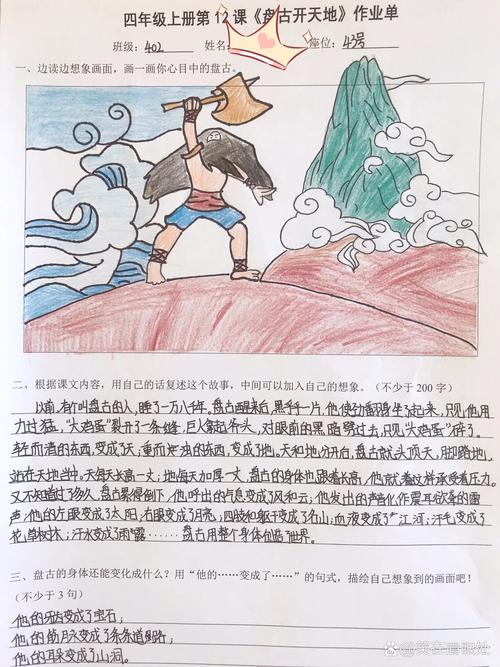 四年级上册第12课《盘古开天地》作业单
班级: 402 姓名: 座位: 4号
一、边读边想象画面，画一画你心目中的盘古。
二、根据课文内容，用自己的话复述这个故事，中间可以加入自己的想象。（不少于200字）
以前,有个叫盘古的人,睡了一万八千年。盘古醒来后黑乎乎一片,他使劲翻身坐了起来,只见他用
力过猛,“大鸡蛋”裂开了一条缝,巨人拿起斧头,对眼前的黑暗劈过去,只见“大鸡蛋”碎了。
轻而清的东西,变成了天;重而浊的东西,变成了地。天和地分开后,盘古就头顶天,脚踏地,
站在天地当中。天每天长高一丈;地每天加厚一丈,盘古的身体也跟着长高,他就着这样承受着压力。
又不知道过了多久,盘古累得倒下,他呼出的气息变成了风和云;他发出的声音化作震耳欲聋的雷
声;他的左眼变成了太阳,右眼变成了月亮;四肢和躯干变成了名山;血液变成了江河;汗毛变成了
花草树木;汗水变成了雨露……盘古用整个身体创造了世界。
三、盘古的身体还能变化成什么？用“他的……变成了……”的句式，描绘自己想象到的画面吧！
（不少于3句）
他的牙齿变成了宝石;
他的筋脉变成了条条道路;
他的耳朵变成了山洞。
笑在眉眼处